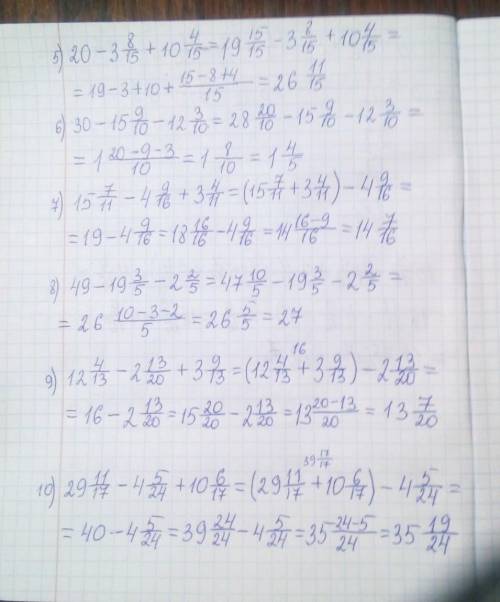 5) 20 - 3 8/15 + 10 4/15 = 19 15/15 - 3 8/15 + 10 4/15 =
= 19 - 3 + 10 + (15-8+4)/15 = 26 11/15
6) 30 - 15 9/10 - 12 3/10 = 28 20/10 - 15 9/10 - 12 3/10 =
= 1 (20-9-3)/10 = 1 8/10 = 1 4/5
7) 15 7/11 - 4 9/16 + 3 4/11 = (15 7/11 + 3 4/11) - 4 9/16 =
= 19 - 4 9/16 = 18 16/16 - 4 9/16 = 14 (16-9)/16 = 14 7/16
8) 49 - 19 3/5 - 2 2/5 = 47 10/5 - 19 3/5 - 2 2/5 =
= 26 (10-3-2)/5 = 26 5/5 = 27
16
9) 12 4/13 - 2 13/20 + 3 9/13 = (12 4/13 + 3 9/13) - 2 13/20 =
= 16 - 2 13/20 = 15 20/20 - 2 13/20 = 13 (20-13)/20 = 13 7/20
39 17/17
10) 29 11/17 - 4 5/24 + 10 6/17 = (29 11/17 + 10 6/17) - 4 5/24 =
= 40 - 4 5/24 = 39 24/24 - 4 5/24 = 35 (24-5)/24 = 35 19/24